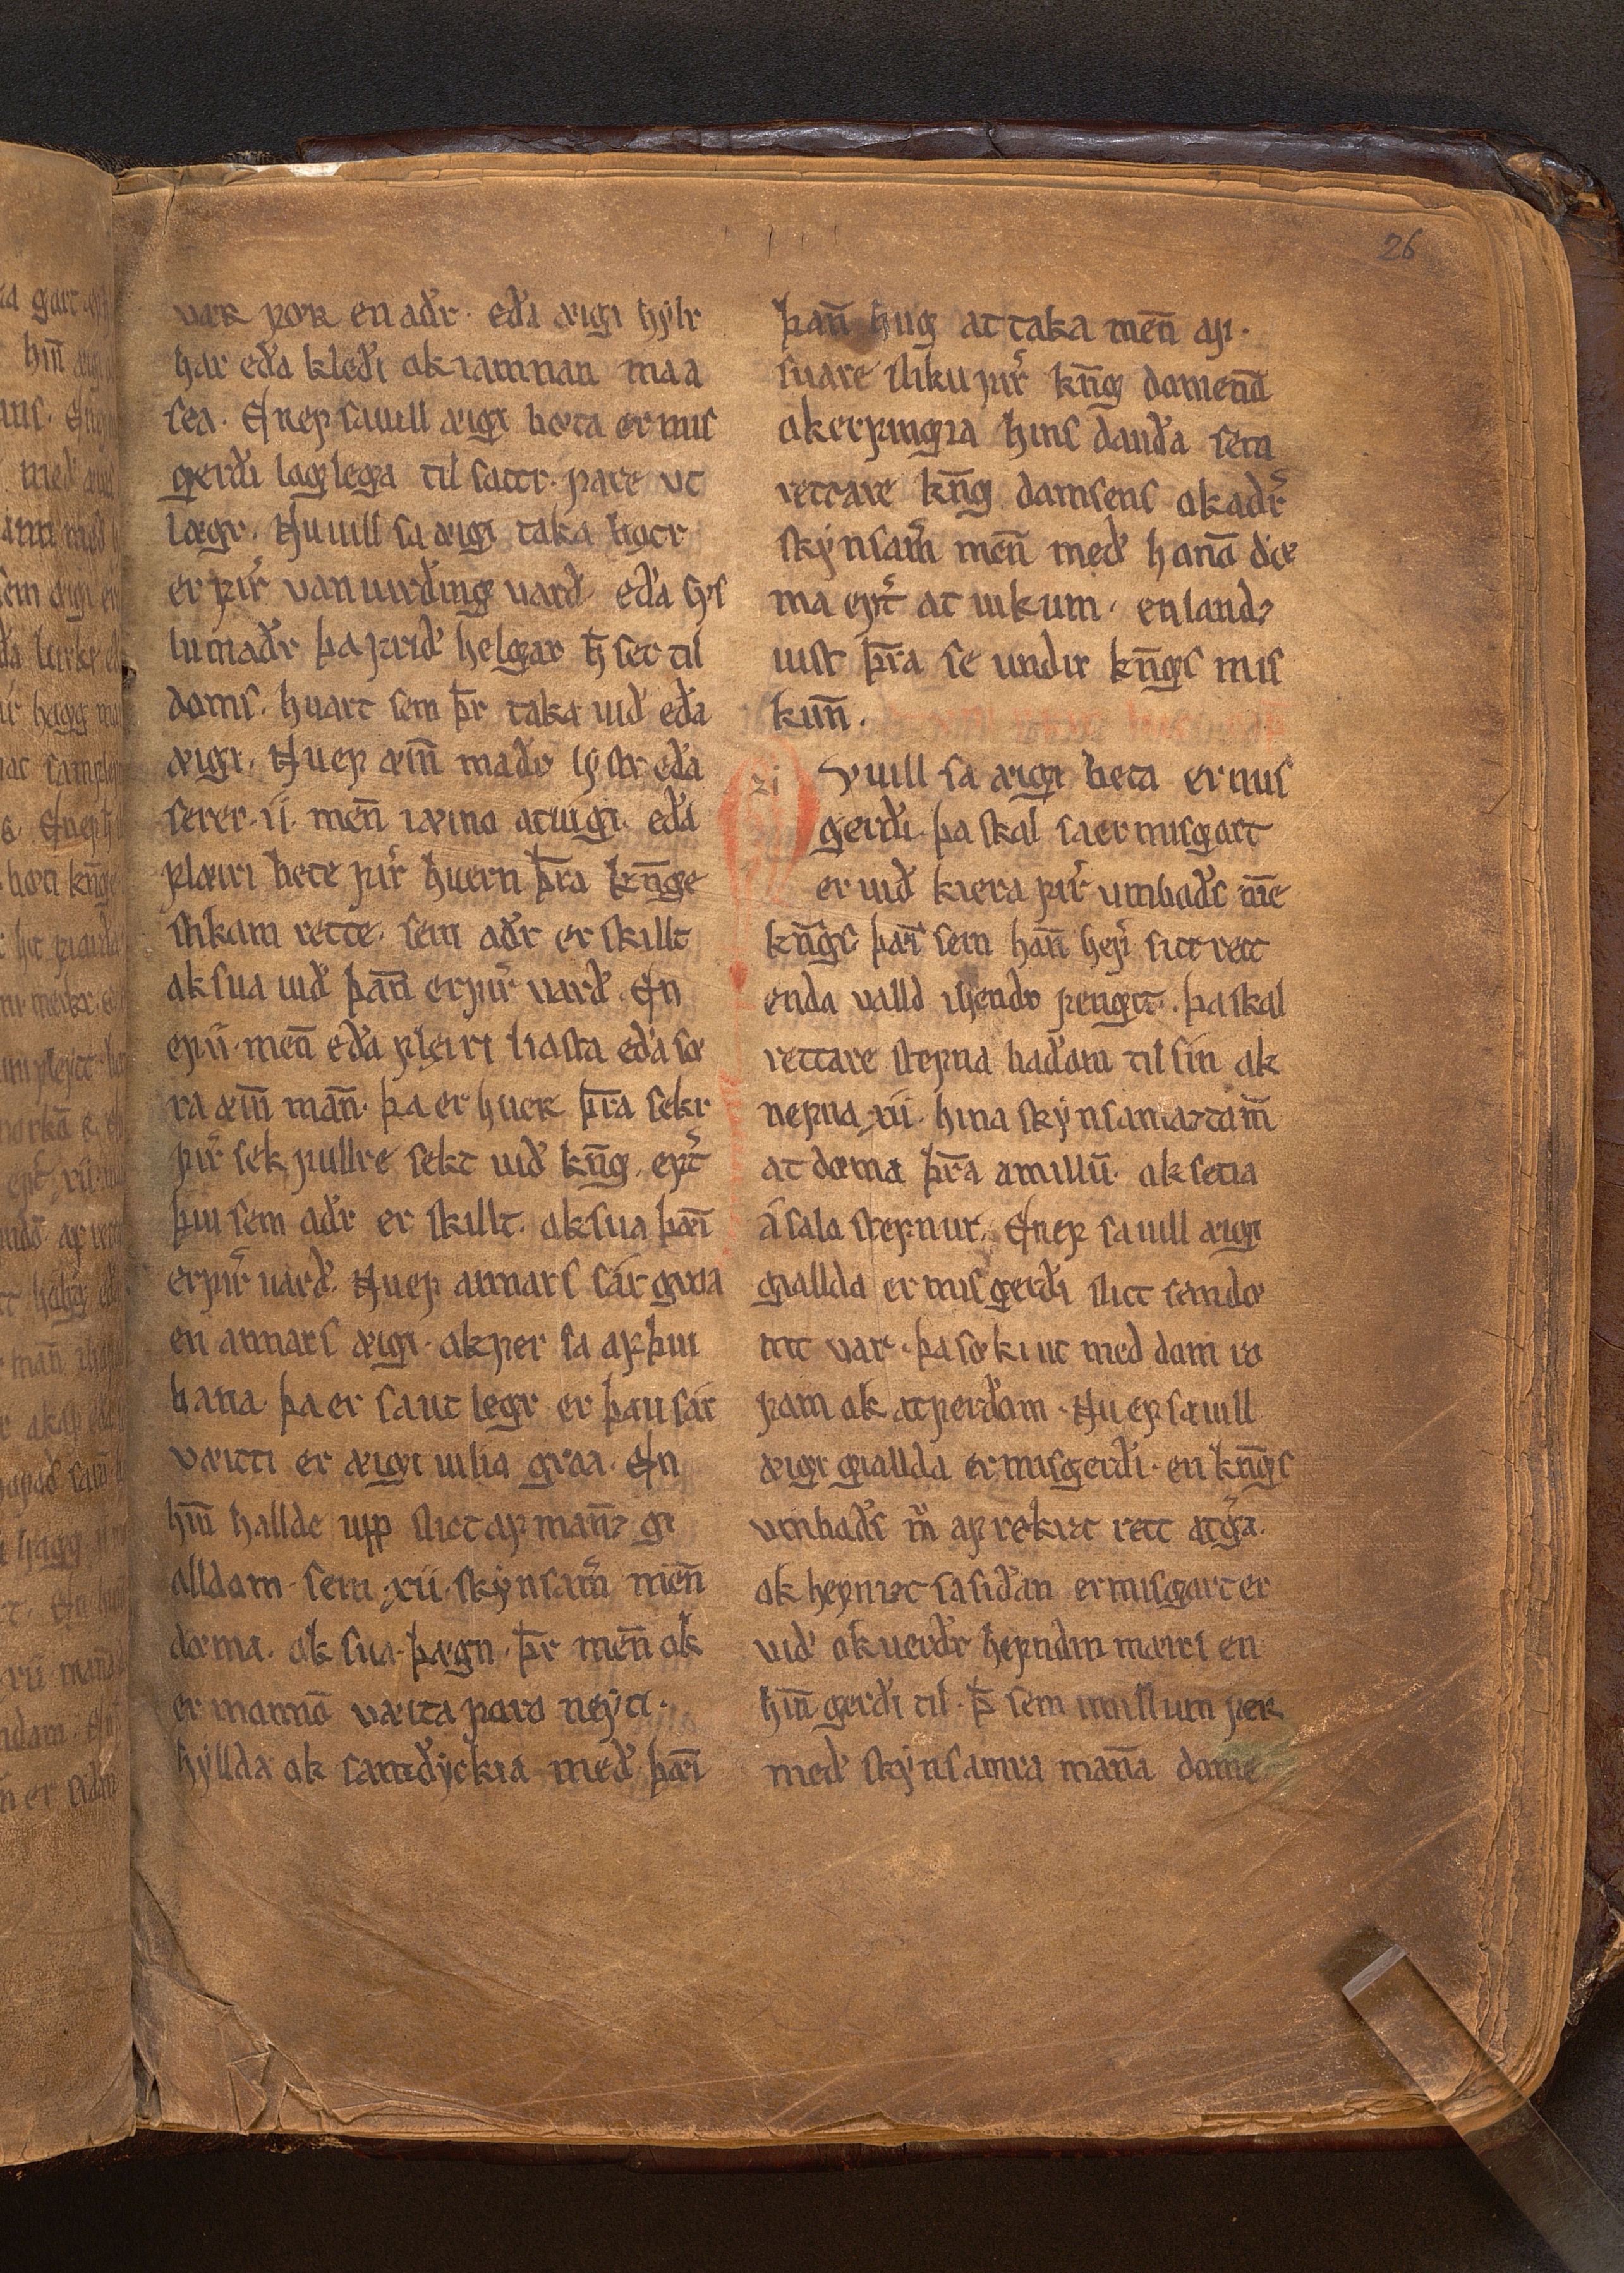 26
vær vor en aðr. eða æigi hylr
har eða kleði ok iamnan maa
sea. En ef sa uill æigi bœta er mis
gerði laglega til sattr. fare vt
lægr. Nu uill sa æigi taka bøtr
er fir̃ vanuirðing uarð. eða sys
lumaðr þa frið helgar h̄ set til
doms. huart sem þr̄ taka uið eða
æigi. Nu ef æiñ maðr lystr eða
serer .ii. meñ i æino atuigi. eða
flæiri bete fir̃ huern þr̄a kn̄ge
slikam rette. sem aðr er skillt
ok sua uið þañ er fir̃ varð. En
ef .ii. meñ eða flæiri liosta eða sæ
ra æiñ mañ. þa er huer þr̄a sekr
fir̃ sek fullre sekt uið kn̄g. ept̃
þui sem aðr er skillt. ok sua þæĩ
er fir̃ uarð. Nu ef annars sár groa
en annars æigi. ok fer sa af þui
bana. þa er sa ut legr er þau sár
væitti er æigi uilia groa. En
hiñ hallde upp slict af mañz gi
alldom. sem .xii. skynsam̃ meñ
dœma. ok sua þegn. þr̄ meñ ok
er mannō væita foro neyti.
hyllda ok samðyckia með þæĩ
þañ hug at taka meñ af.
suare sliku fir̃ kn̄g domenō
ok erfingia hins dauða sem
rettare kn̄g domsens ok aðr̃
skynsam̃ meñ með hanō dœ
ma ept̃ at uikum. en landz
uist þr̄a se undir kn̄gs mis
kuñ.
zi
V uill sa æigi beta er mis
gerði. þa skal sa er misgort
er uið kiera fir̃ umboðs m̄e
kn̄gs þæĩ sem hañ hef̃ sitt rett
enda valld i hendr fengit. þa skal
rettare stefna baðom til sin ok
nefna .xii. hina skynsamaztom̃
at dœma þr̄a amillū. ok setia
á sala stefnur. En ef sa uill æigi
giallda er misgerði slict sem dœ
mt var. þa sœki ut med dom ro
fom ok atferðom. Nu ef sa uill
æigi giallda er misgerði. en kn̄gs
vmboðs m̃ afrøkizt rett at g̃a.
ok hefnizt sa siðan er misgort er
við ok uerðr hefndin mæiri en
hiñ gerði til. þ̄ sem imillum fer
með skynsamra mañā dome